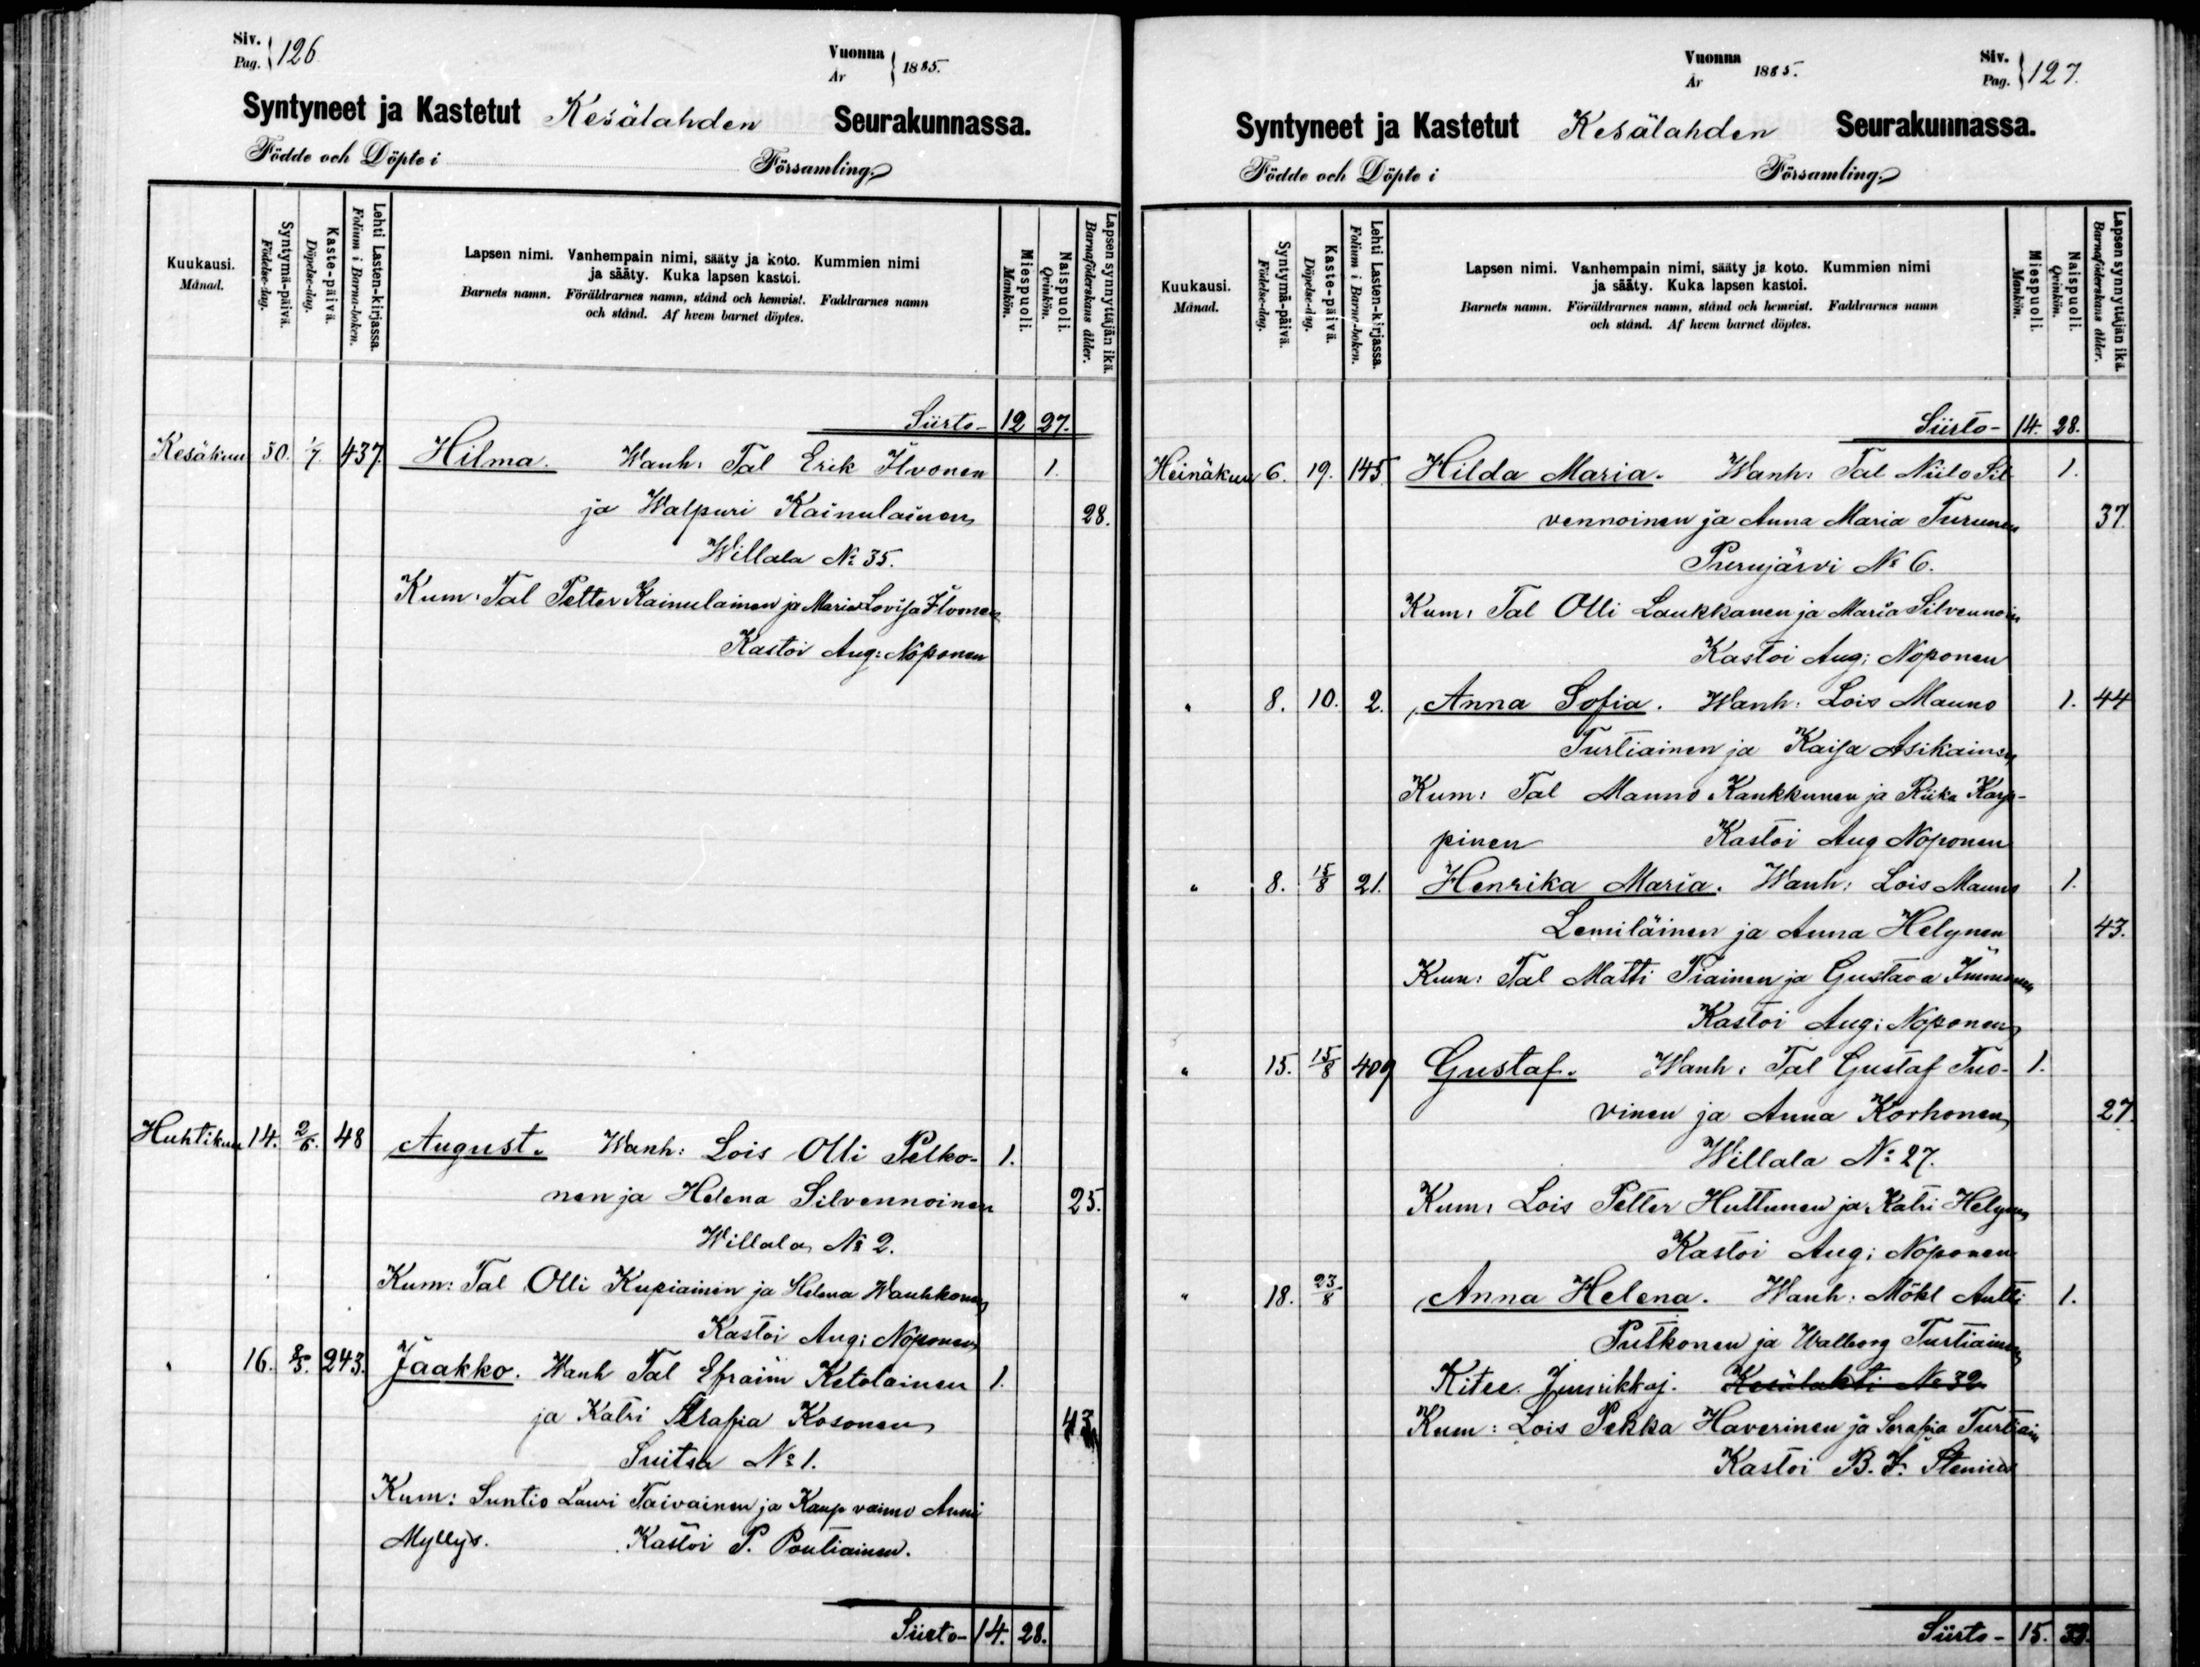 Siv. Pag. 126
Vuonna År 1885.
Syntyneet ja Kastetut Kesälahden Seurakunnassa.
Födde och Döpte i Församling.
Kuukausi. Månad.
Syntymä-päivä. Födelse-dag.
Kaste-päivä. Döpelse-dag.
Lehti Lasten-kirjassa. Folium i Barna-boken.
Lapsen nimi. Vanhempain nimi, sääty ja koto. Kummien nimi
ja sääty. Kuka lapsen kastoi.
Barnets namn. Föräldrarnes namn, stånd och hemvist. Faddrarnes namn
och stånd. Af hvem barnet döptes.
Miespuoli. Mankön.
Naispuoli. Qvinkön.
Lapsen synnyttäjän ikä. Barnaföderskans ålder.
Siirto- 12 27.
Kesäkuu 30. 1/7. 437. Hilma. Wanh: Tal Erik Ilvonen 1.
ja Walpuri Kainulainen 28.
Willala No 35.
Kum: Tal Petter Kainulainen ja Maria Lovisa Ilvonen
Kastoi Aug: Noponen
Huhtikuu 14. 2/5. 48 August. Wanh: Lois Olli Pelko- 1.
nen ja Helena Silvennoinen 25.
Willala No 2.
Kum: Tal Olli Kupiainen ja Helena Wauhkonen
Kastoi Aug: Noponen
" 16. 8/5. 243. Jaakko. Wanh Tal Efraim Ketolainen 1.
ja Katri Serafia Kosonen 43
Suitsa No 1.
Kum: Suntio Lauri Taivainen ja Kaup vaimo Anni
Myllys. Kastoi P. Poutiainen.
Siirto- 14. 28.
Vuonna År 1885.
Siv. Pag. 127.
Syntyneet ja Kastetut Kesälahden Seurakunnassa.
Födde och Döpte i Församling.
Kuukausi. Månad.
Syntymä-päivä. Födelse-dag.
Kaste-päivä. Döpelse-dag.
Lehti Lasten-kirjassa. Folium i Barna-boken.
Lapsen nimi. Vanhempain nimi, sääty ja koto. Kummien nimi
ja sääty. Kuka lapsen kastoi.
Barnets namn. Föräldrarnes namn, stånd och hemvist. Faddrarnes namn
och stånd. Af hvem barnet döptes.
Miespuoli. Mankön.
Naispuoli. Qvinkön.
Lapsen synnyttäjän ikä. Barnaföderskans ålder.
Siirto- 14. 28.
Heinäkuu 6. 19. 145 Hilda Maria. Wanh: Tal Niilo Sil 1.
vennoinen ja Anna Maria Turunen 37.
Purujärvi No 6.
Kum: Tal Olli Laukkanen ja Maria Silvennoin
Kastoi Aug: Noponen
" 8. 10. 2. Anna Sofia. Wanh: Lois Mauno 1. 44
Turtiainen ja Kaisa Asikainen
Kum: Tal Mauno Kaukkunen ja Riika Karp-
pinen Kastoi Aug Noponen
" 8. 15/8 21. Henrika Maria. Wanh: Lois Mauno 1.
Lemiläinen ja Anna Helynen 43.
Kum: Tal Matti Piainen ja Gustava Immonen
Kastoi Aug: Noponen
" 15. 15/8 409 Gustaf. Wanh: Tal Gustaf Tuo- 1.
vinen ja Anna Korhonen 27.
Willala No 27.
Kum: Lois Petter Huttunen ja Katri Helynen
Kastoi Aug: Noponen
" 18. 23/8 Anna Helena. Wanh: Mökl Antti 1.
Putkonen ja Walborg Turtiainen
Kitee. Juurikkaj. Kesälahti No 32
Kum: Lois Pekka Haverinen ja Serafia Turtiain
Kastoi B. F. Stenius
Siirto- 15. 32.